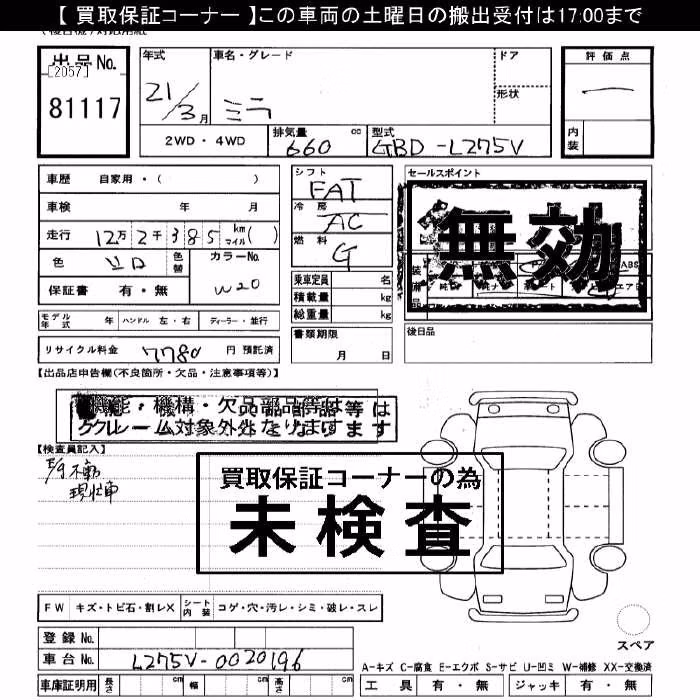 【 買取保証コーナー 】この車両の土曜日の搬出受付は17:00まで
出品No.
[2057]
81117
年式
21/3月
車名・グレード
ミラ
ドア
形状
評価点
内装
2WD・4WD
排気量
660 cc
型式
GBD-L275V
車歴 自家用・( )
車検 年 月
走行 12万2千385 km マイル( )
色 シロ 色替 カラーNo. W20
保証書 有・無
モデル年式 年 ハンドル 左・右 ディーラー・並行
リサイクル料金 7780 円 預託済
シフト FAT
冷房 AC
燃料 G
乗車定員 名
積載量 kg
総重量 kg
書類期限
月 日
セールスポイント
無効
後日品
【出品店申告欄(不良箇所・欠品・注意事項等)】
機能・機構・欠品部品等は
クレーム対象外となります
【検査員記入】
E/g不動
現状車
買取保証コーナーの為
未検査
FW キズ・トビ石・割レX シート内装 コゲ・穴・汚レ・シミ・破レ・スレ
登録No.
車台No. L275V-0020196
車庫証明用 長さ cm 幅 cm 高さ cm
スペア
A-キズ C-腐食 E-エクボ S-サビ U-凹ミ W-補修 XX-交換済
工具 有・無 ジャッキ 有・無